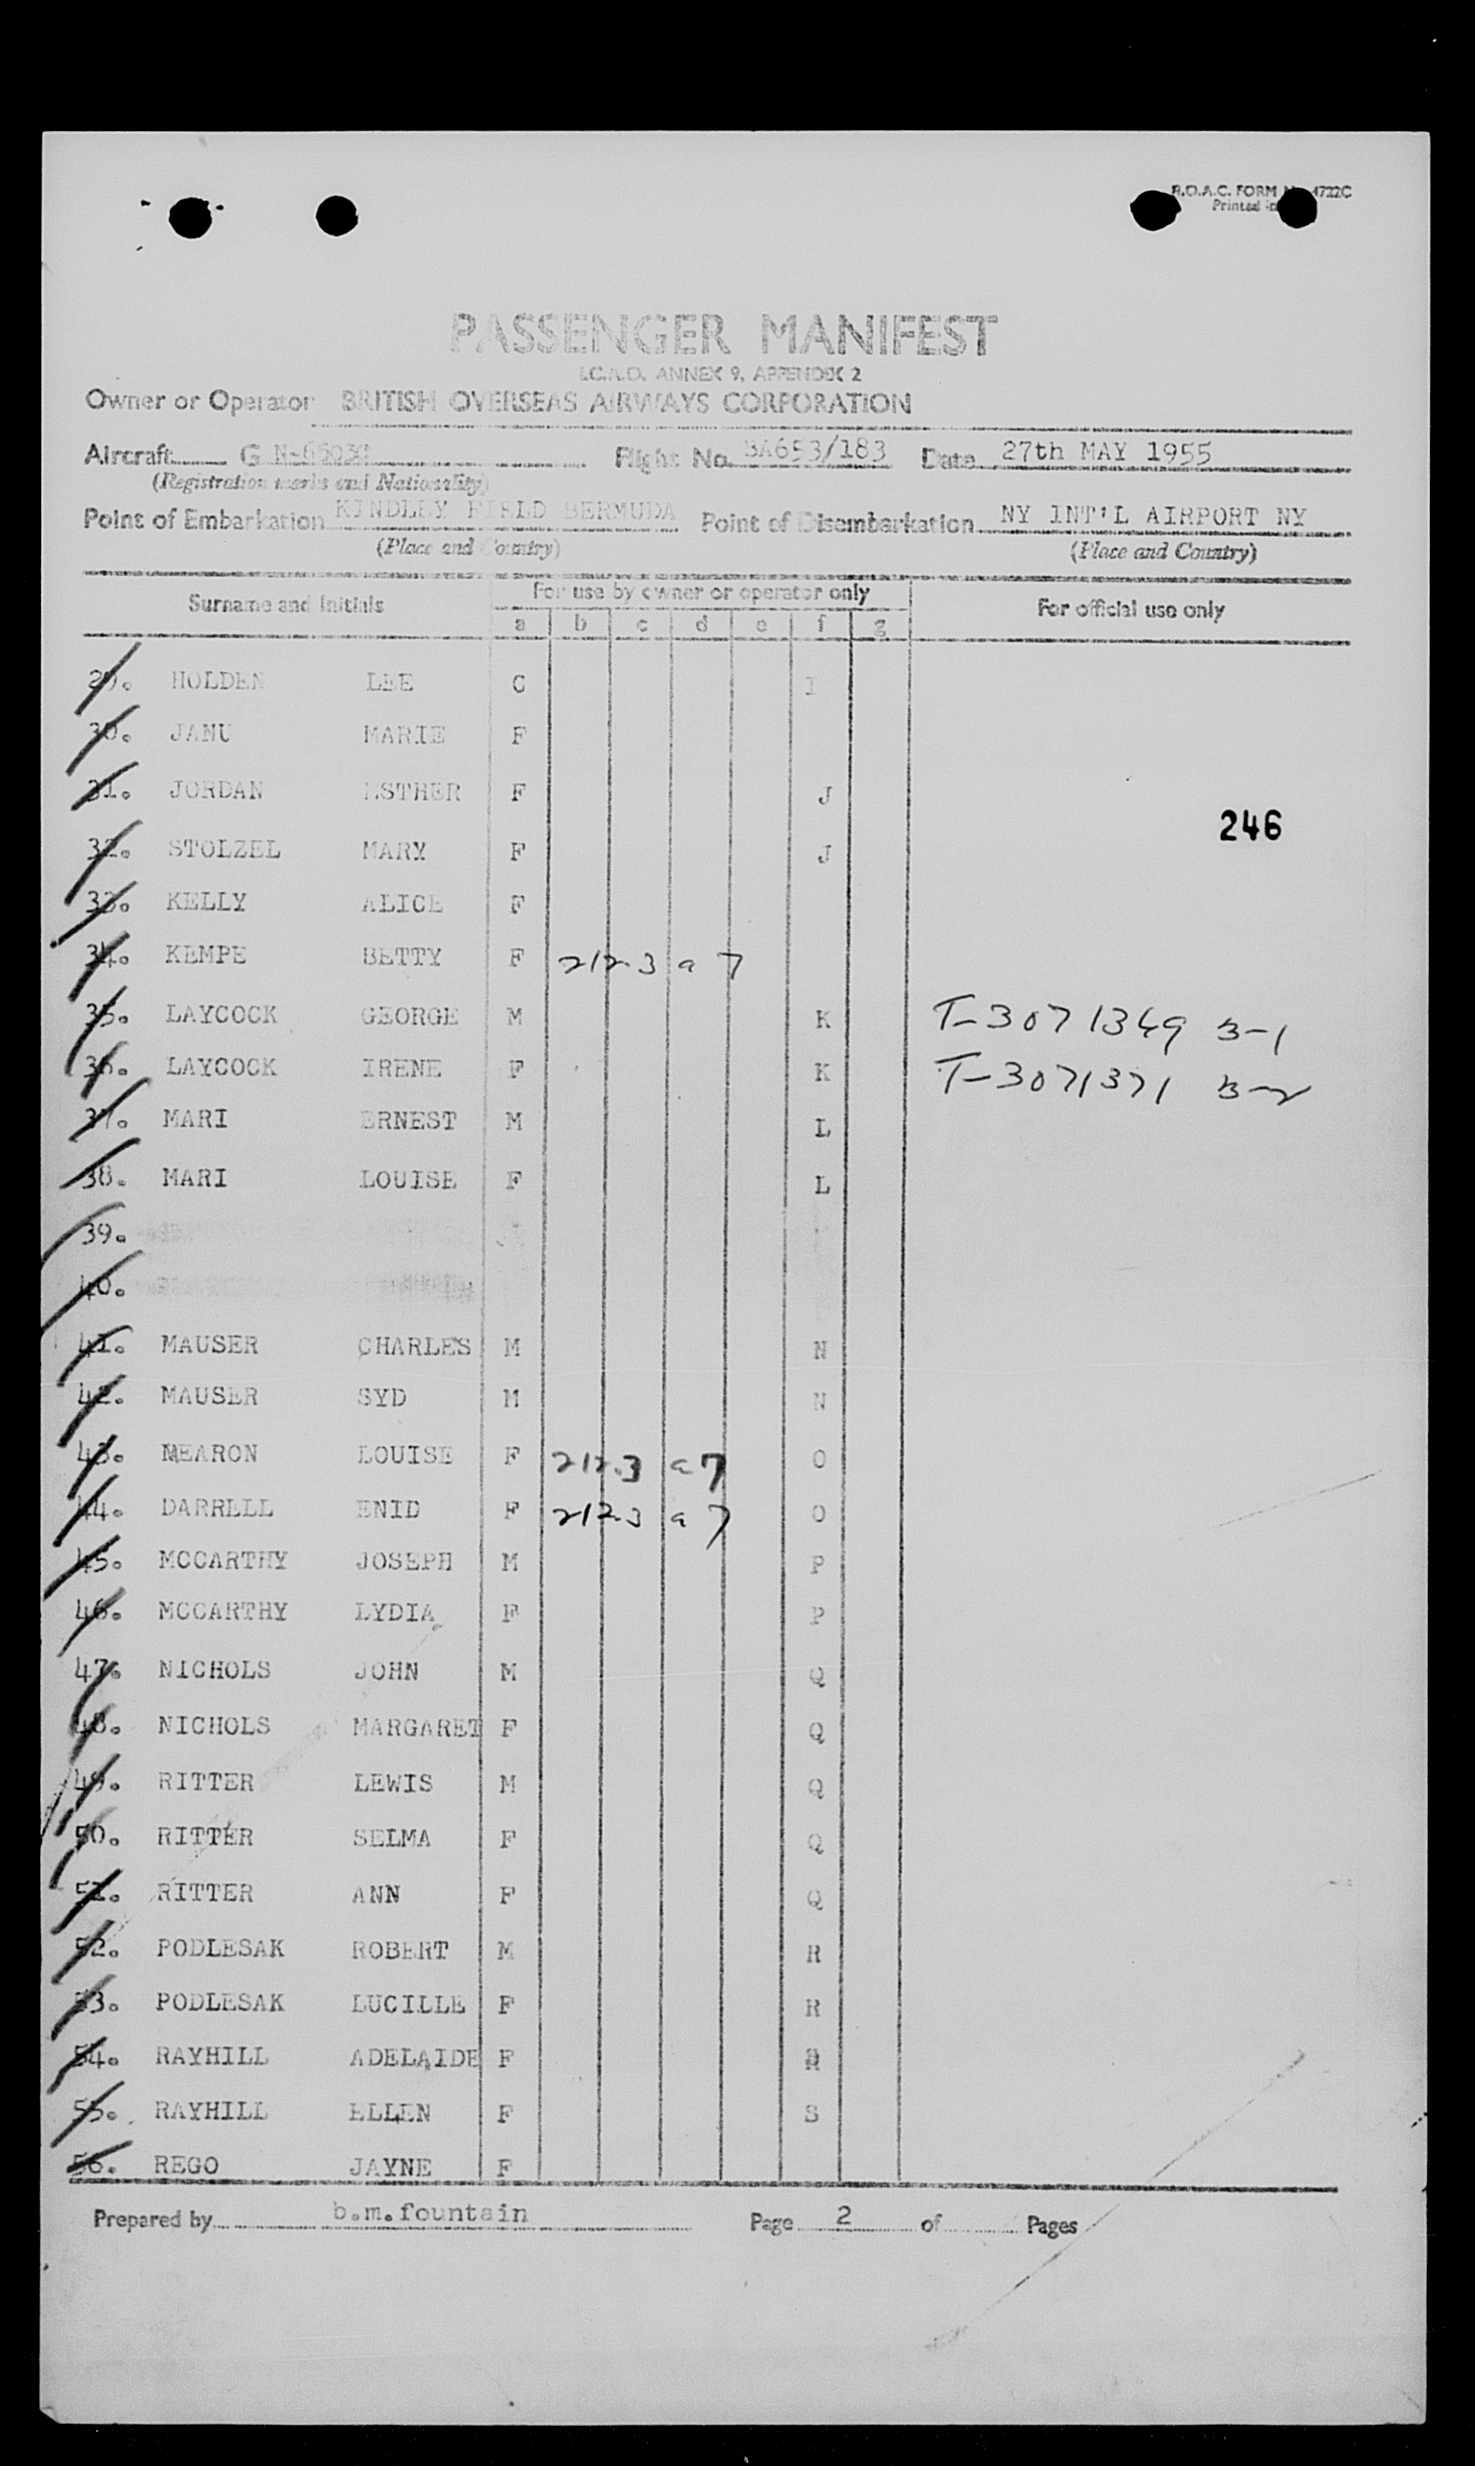 B.O.A.C. FORM 4722C
Printed in
PASSENGER MANIFEST
I.C.A.O. ANNEX 9, APPENDIX 2
Owner or Operator BRITISH OVERSEAS AIRWAYS CORPORATION
Aircraft G Flight No. BA653/183 Date 27th MAY 1955
(Registration marks and Nationality)
Point of Embarkation KINDLEY FIELD BERMUDA Point of Disembarkation NY INT'L AIRPORT NY
(Place and Country) (Place and Country)
Surname and Initials For use by owner or operator only For official use only
a b c d e f g
29. HOLDEN LEE C I
30. JANU MARIE F
31. JORDAN ESTHER F J
246
32. STOLZEL MARY F J
33. KELLY ALICE F
34. KEMPE BETTY F 212.3 a 7
35. LAYCOCK GEORGE M K T-3071369 B-1
36. LAYCOCK IRENE F K T-3071371 B-2
37. MARI ERNEST M L
38. MARI LOUISE F L
39.
40.
41. MAUSER CHARLES M N
42. MAUSER SYD M N
43. MEARON LOUISE F 212.3 a 7 O
44. DARRELL ENID F 212.3 a 7 O
45. MCCARTHY JOSEPH M P
46. MCCARTHY LYDIA F P
47. NICHOLS JOHN M Q
48. NICHOLS MARGARET F Q
49. RITTER LEWIS M Q
50. RITTER SELMA F Q
51. RITTER ANN F Q
52. PODLESAK ROBERT M R
53. PODLESAK LUCILLE F R
54. RAYHILL ADELAIDE F
55. RAYHILL ELLEN F S
56. REGO JAYNE F
Prepared by b.m.fountain Page 2 of Pages